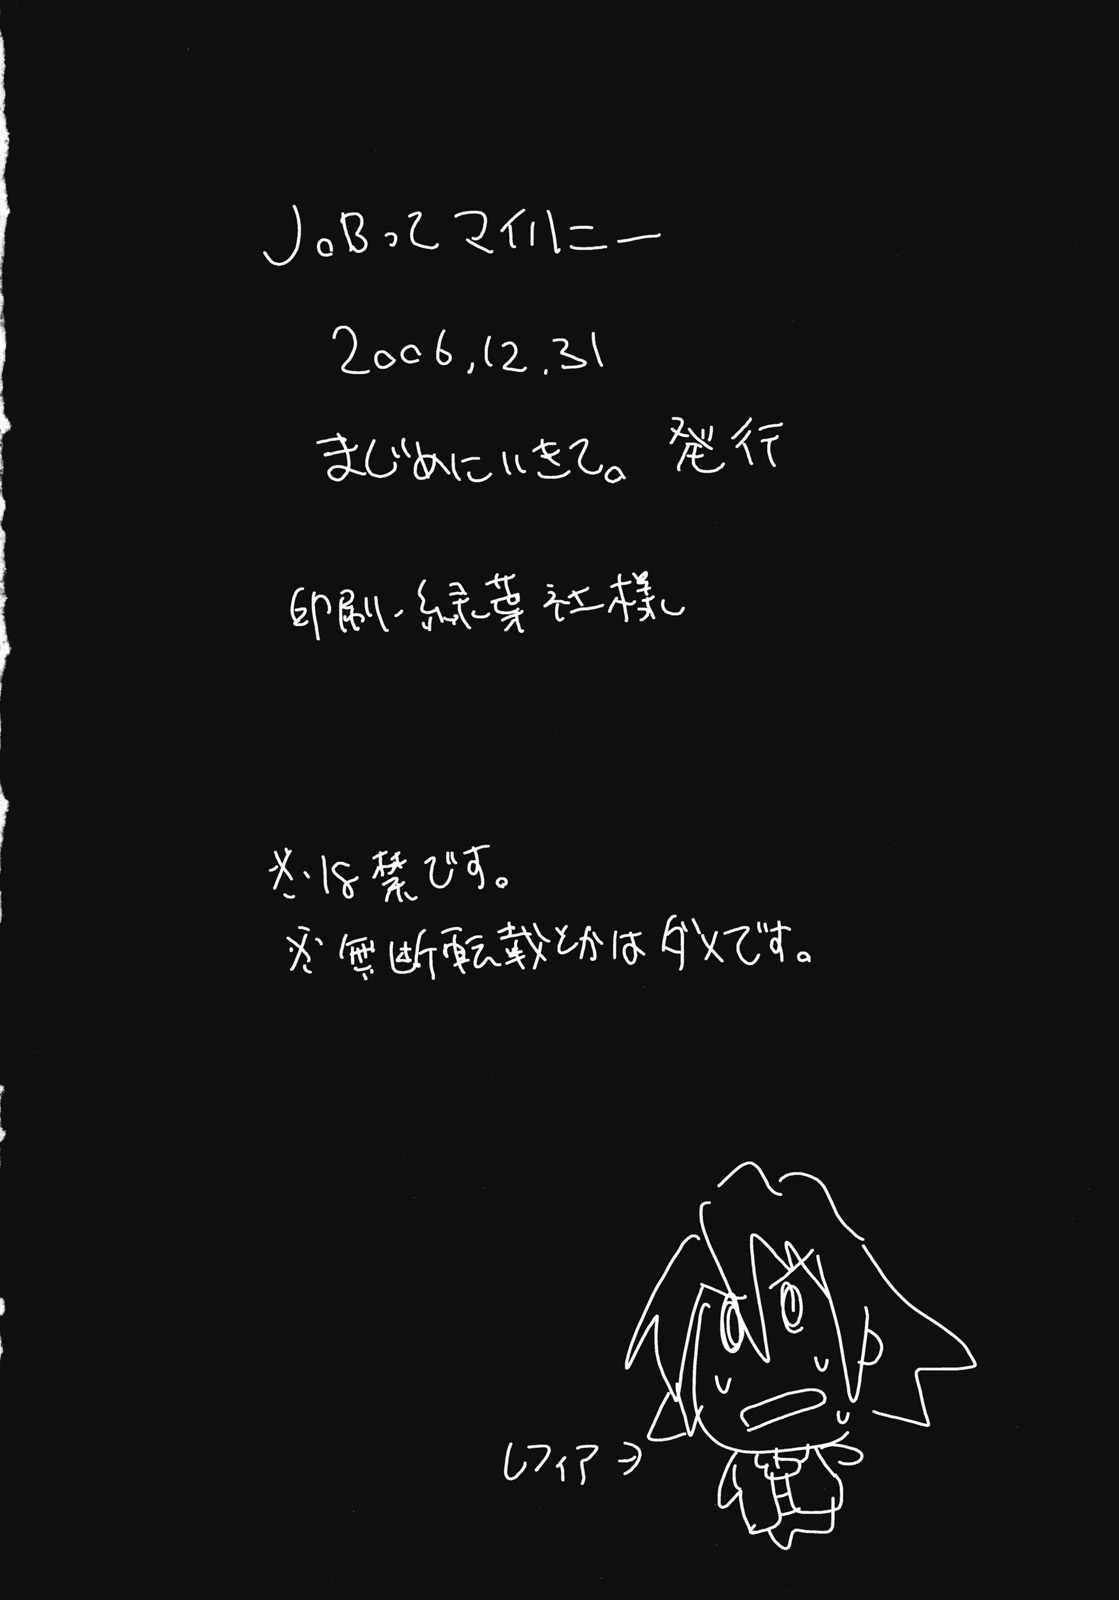 JoBってマイハニー
2006.12.31
まじめにいきて。 発行
印刷・緑葉社様
※は禁です。
※無断転載とかはダメです。
レフィア→